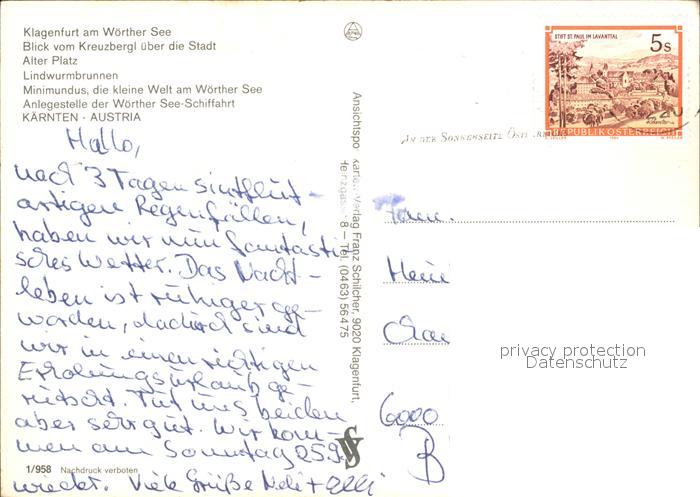 Klagenfurt am Wörther See
Blick vom Kreuzbergl über die Stadt
Alter Platz
Lindwurmbrunnen
Minimundus, die kleine Welt am Wörther See
Anlegestelle der Wörther See-Schiffahrt
KÄRNTEN - AUSTRIA
Hallo,
nach 3 Tagen sintflut-
artigen Regenfällen,
haben wir nun fantasti-
sches Wetter. Das Nacht-
leben ist ruhiger ge-
worden, dadurch sind
wir in einen richtigen
Erholungsurlaub ge-
rutscht. Tut uns beiden
aber sehr gut. Wir kom-
men am Sonntag 25.9.
wieder. Viele Grüße
1/958 Nachdruck verboten
Verlag Franz Schilcher, 9020 Klagenfurt,
8 – Tel. (0463) 56475
STIFT ST. PAUL IM LAVANTTAL
5 S
REPUBLIK ÖSTERREICH
AN DER SONNENSEITE
Fam.
6000
privacy protection
Datenschutz